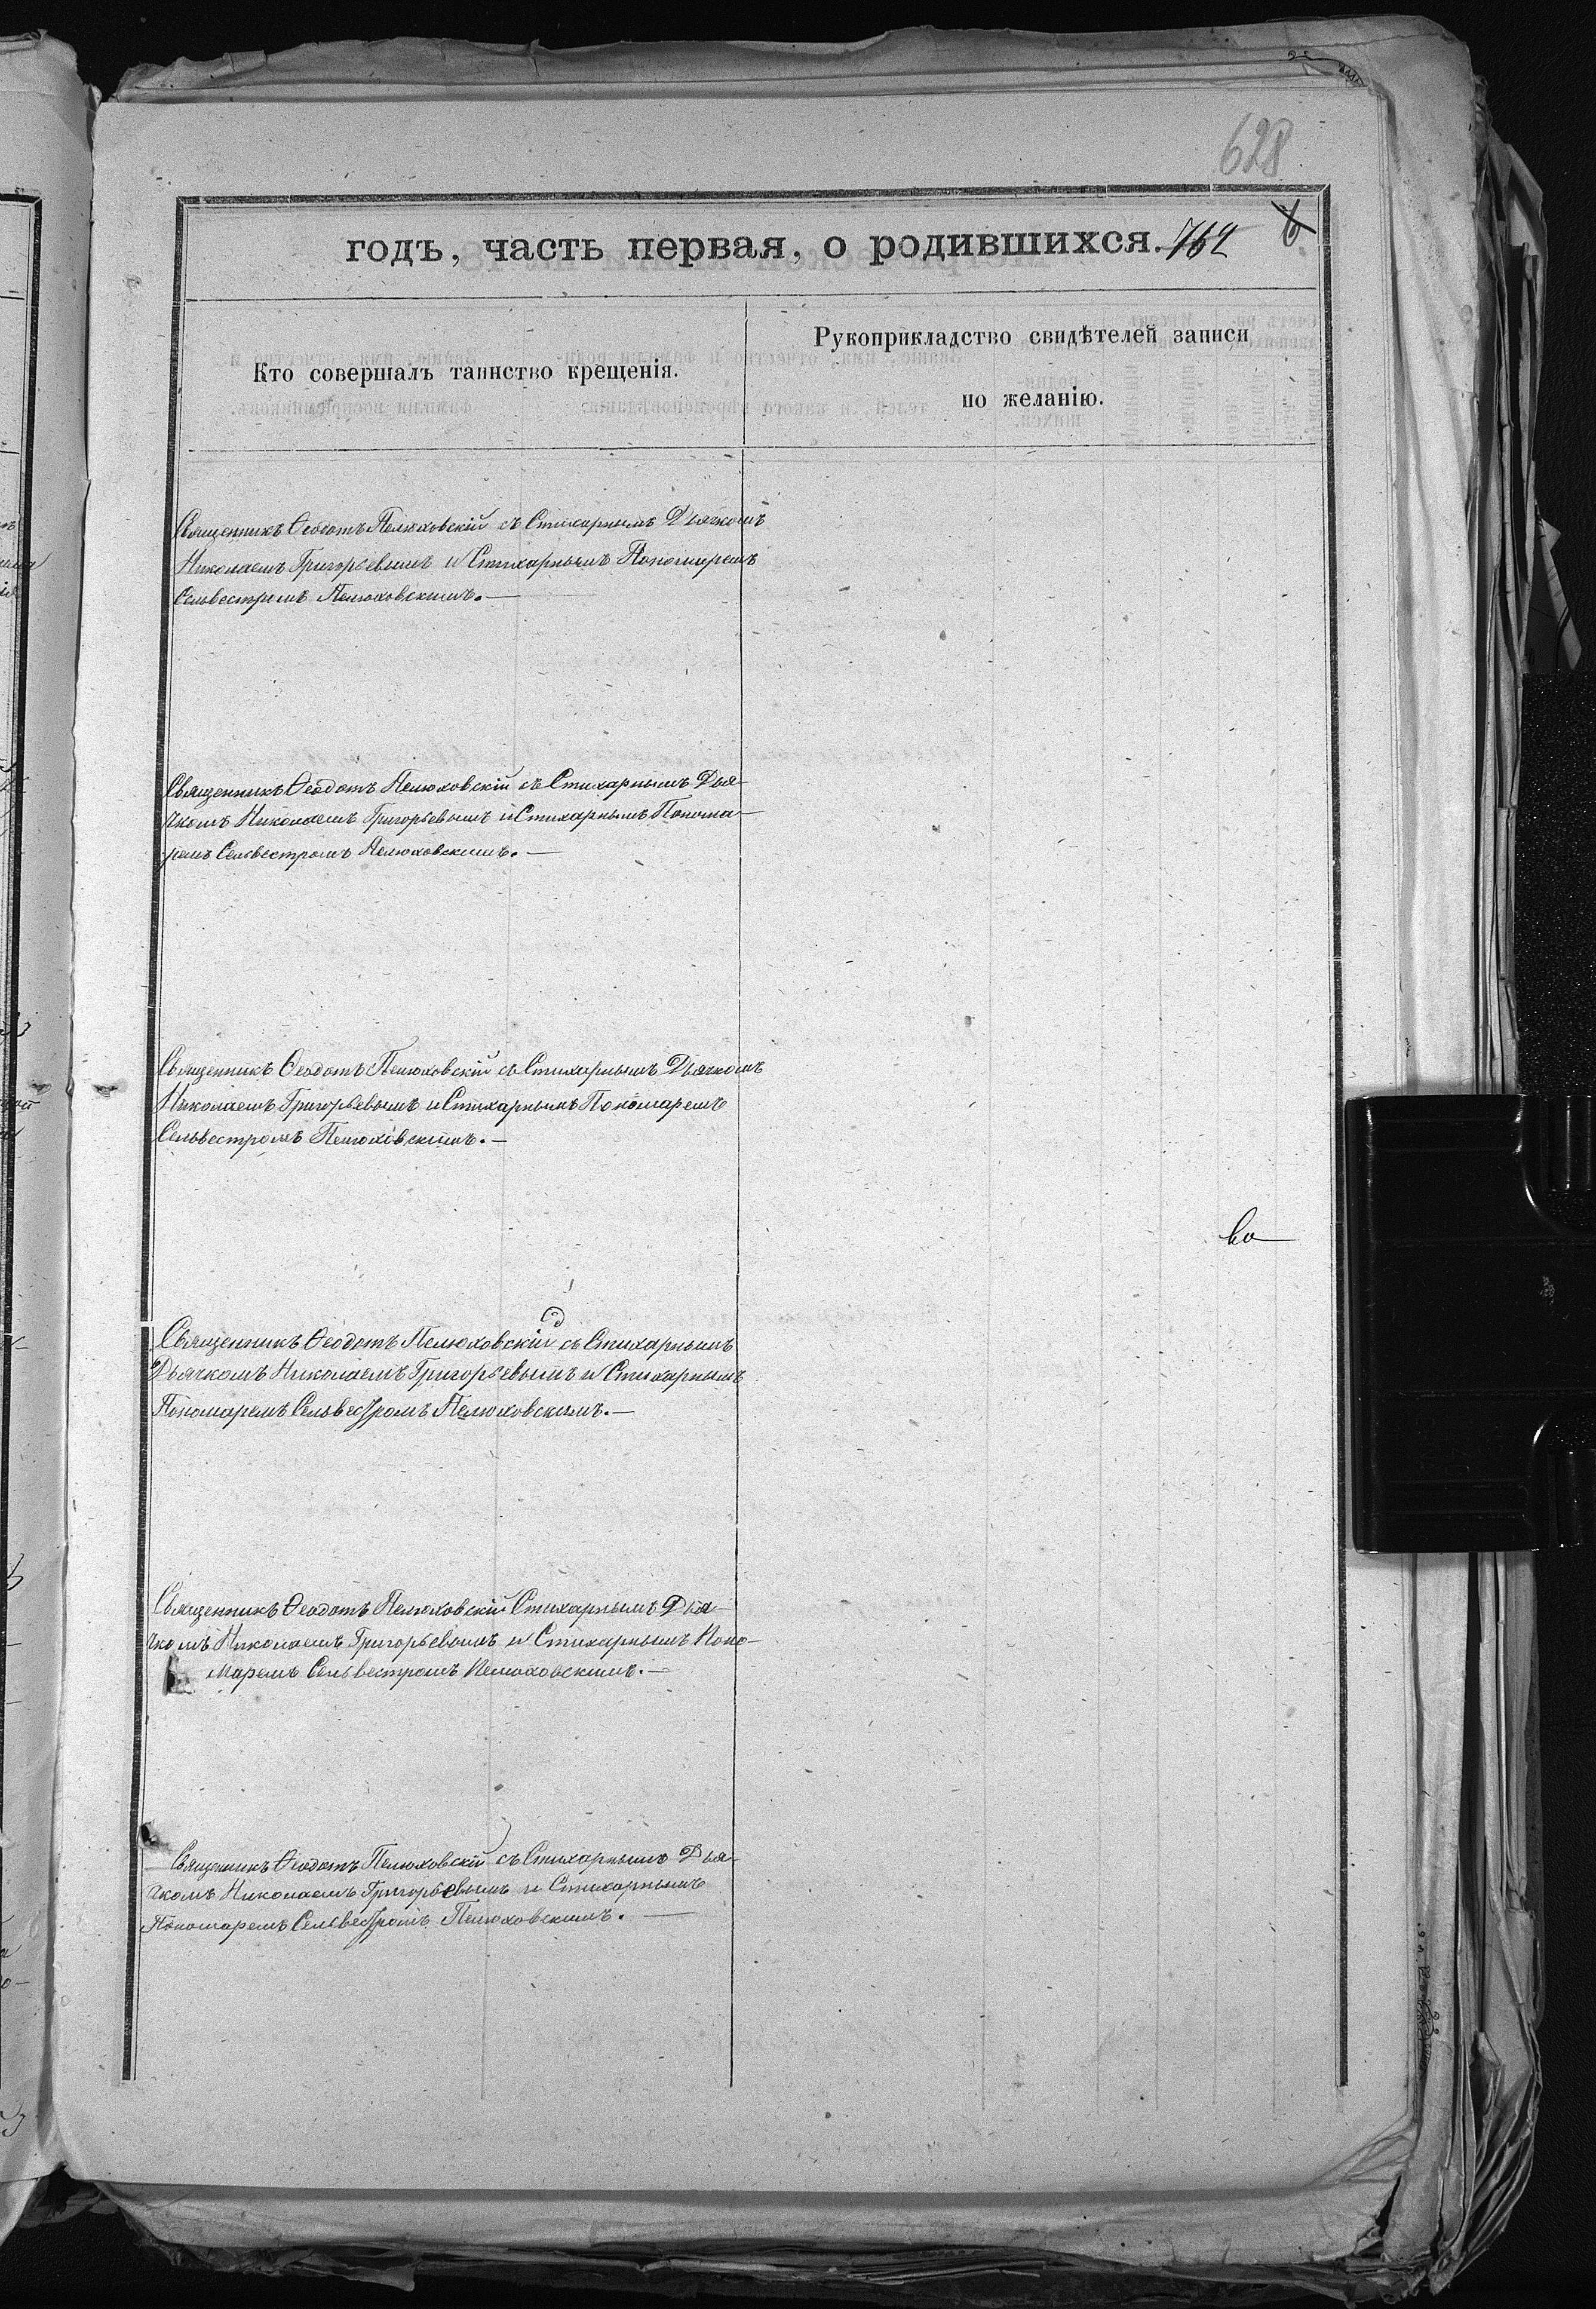 628
годъ, часть первая, о родившихся. 762 6
Кто совершалъ таинство крещенія.
Рукоприкладство свидѣтелей записи
по желанію.
Священникъ Ѳеодотъ Пелюховскій съ Стихарнымъ Дьячкомъ
Николаемъ Григорьевымъ и Стихарнымъ Пономаремъ
Сельвестромъ Пелюховскимъ.—
Священникъ Ѳеодотъ Пелюховскій съ Стихарнымъ Дья-
чкомъ Николаемъ Григорьевымъ и Стихарнымъ Понома-
ремъ Сельвестромъ Пелюховскимъ.—
Священникъ Ѳеодотъ Пелюховскій съ Стихарнымъ Дьячкомъ
Николаемъ Григорьевымъ и Стихарнымъ Пономаремъ
Сельвестромъ Пелюховскимъ.—
Священникъ Ѳеодотъ Пелюховскій съ Стихарнымъ
Дьячкомъ Николаемъ Григорьевымъ и Стихарнымъ
Пономаремъ Сельвестромъ Пелюховскимъ.—
Священникъ Ѳеодотъ Пелюховскій Стихарнымъ Дья-
чкомъ Николаемъ Григорьевымъ и Стихарнымъ Поно-
маремъ Сельвестромъ Пелюховскимъ.—
Священникъ Ѳеодотъ Пелюховскій съ Стихарнымъ Дья-
чкомъ Николаемъ Григорьевымъ и Стихарнымъ
Пономаремъ Сельвестромъ Пелюховскимъ.—